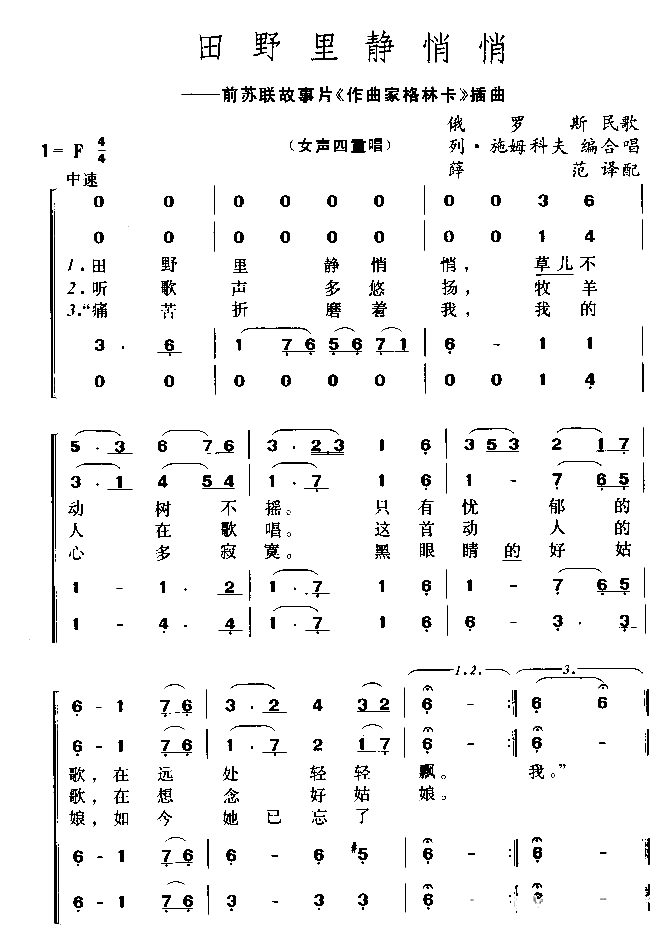 田野里静悄悄
——前苏联故事片《作曲家格林卡》插曲
俄罗斯民歌
1=F 4/4 （女声四重唱） 列·施姆科夫 编合唱
中速 薛范 译配
0 0 0 0 | 0 0 0 0 | 0 0 3 6
0 0 0 0 | 0 0 0 0 | 0 0 1 4
1.田野里静悄悄，草儿不
2.听歌声多悠扬，牧羊
3.“痛苦折磨着我，我的
3 · 6 | 1 7 6 5 6 7 1 | 6 - 1 1
0 0 0 0 | 0 0 0 0 | 0 0 1 4
5 · 3 6 7 6 | 3 · 2 3 1 6 | 3 5 3 2 1 7
3 · 1 4 5 4 | 1 · 7 1 6 | 1 - 7 6 5
动树不摇。只有忧郁的
人在歌唱。这首动人的
心多寂寞。黑眼睛的好姑
1 - 1 · 2 | 1 · 7 1 6 | 1 - 7 6 5
1 - 4 · 4 | 1 · 7 1 6 | 6 - 3 · 3
1.2. 3.
6 - 1 7 6 | 3 · 2 4 3 2 | 6 - :‖ 6 6
6 - 1 7 6 | 1 · 7 2 1 7 | 6 - :‖ 6 -
歌，在远处轻轻飘。我。”
歌，在想念好姑娘。
娘，如今她已忘了
6 - 1 7 6 | 6 - 6 #5 | 6 - :‖ 6 -
6 - 1 7 6 | 3 - 3 3 | 6 - :‖